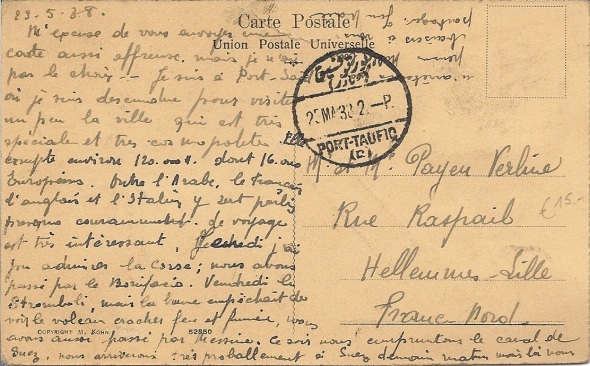 23-5-38.
Carte Postale
Union Postale Universelle
M'excuse de vous envoyer une
carte aussi affreuse, mais je n'ai
pas le choix - Je suis à Port-Saïd
où je suis descendue pour visiter
un peu la ville qui est très
spéciale et très cosmopolite. Elle
compte environ 120.000 H. dont 16.000
Européens. Outre l'Arabe, le français
l'anglais et l'Italien y sont parlés
presque couramment. Le voyage
est très intéressant,
pu admirer la Corse; nous avons
passé par le Bonifacio. Vendredi le
Stromboli, mais la brume empêchait de
voir le volcan cracher feu et fumée, nous
avons aussi passé par Messine. Ce soir nous empruntons le canal de
Suez, nous arriverons très probablement à Suez demain matin mais là nous
n'arrêtons
pour
Baisers à
partager.
25 MA 38 2 - P
PORT-TAUFIQ
M. et Me Payen Verline
Rue Raspail
Hellemmes-Lille
France Nord.
€15.-
COPYRIGHT M. KOHN
52850